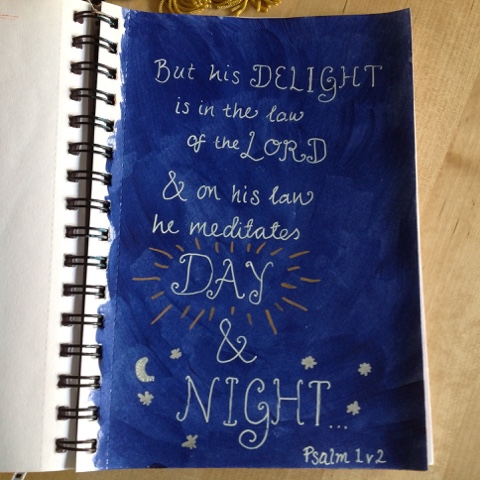 But his DELIGHT
is in the law
of the LORD
& on his law
he meditates
DAY
&
NIGHT...
Psalm 1v2